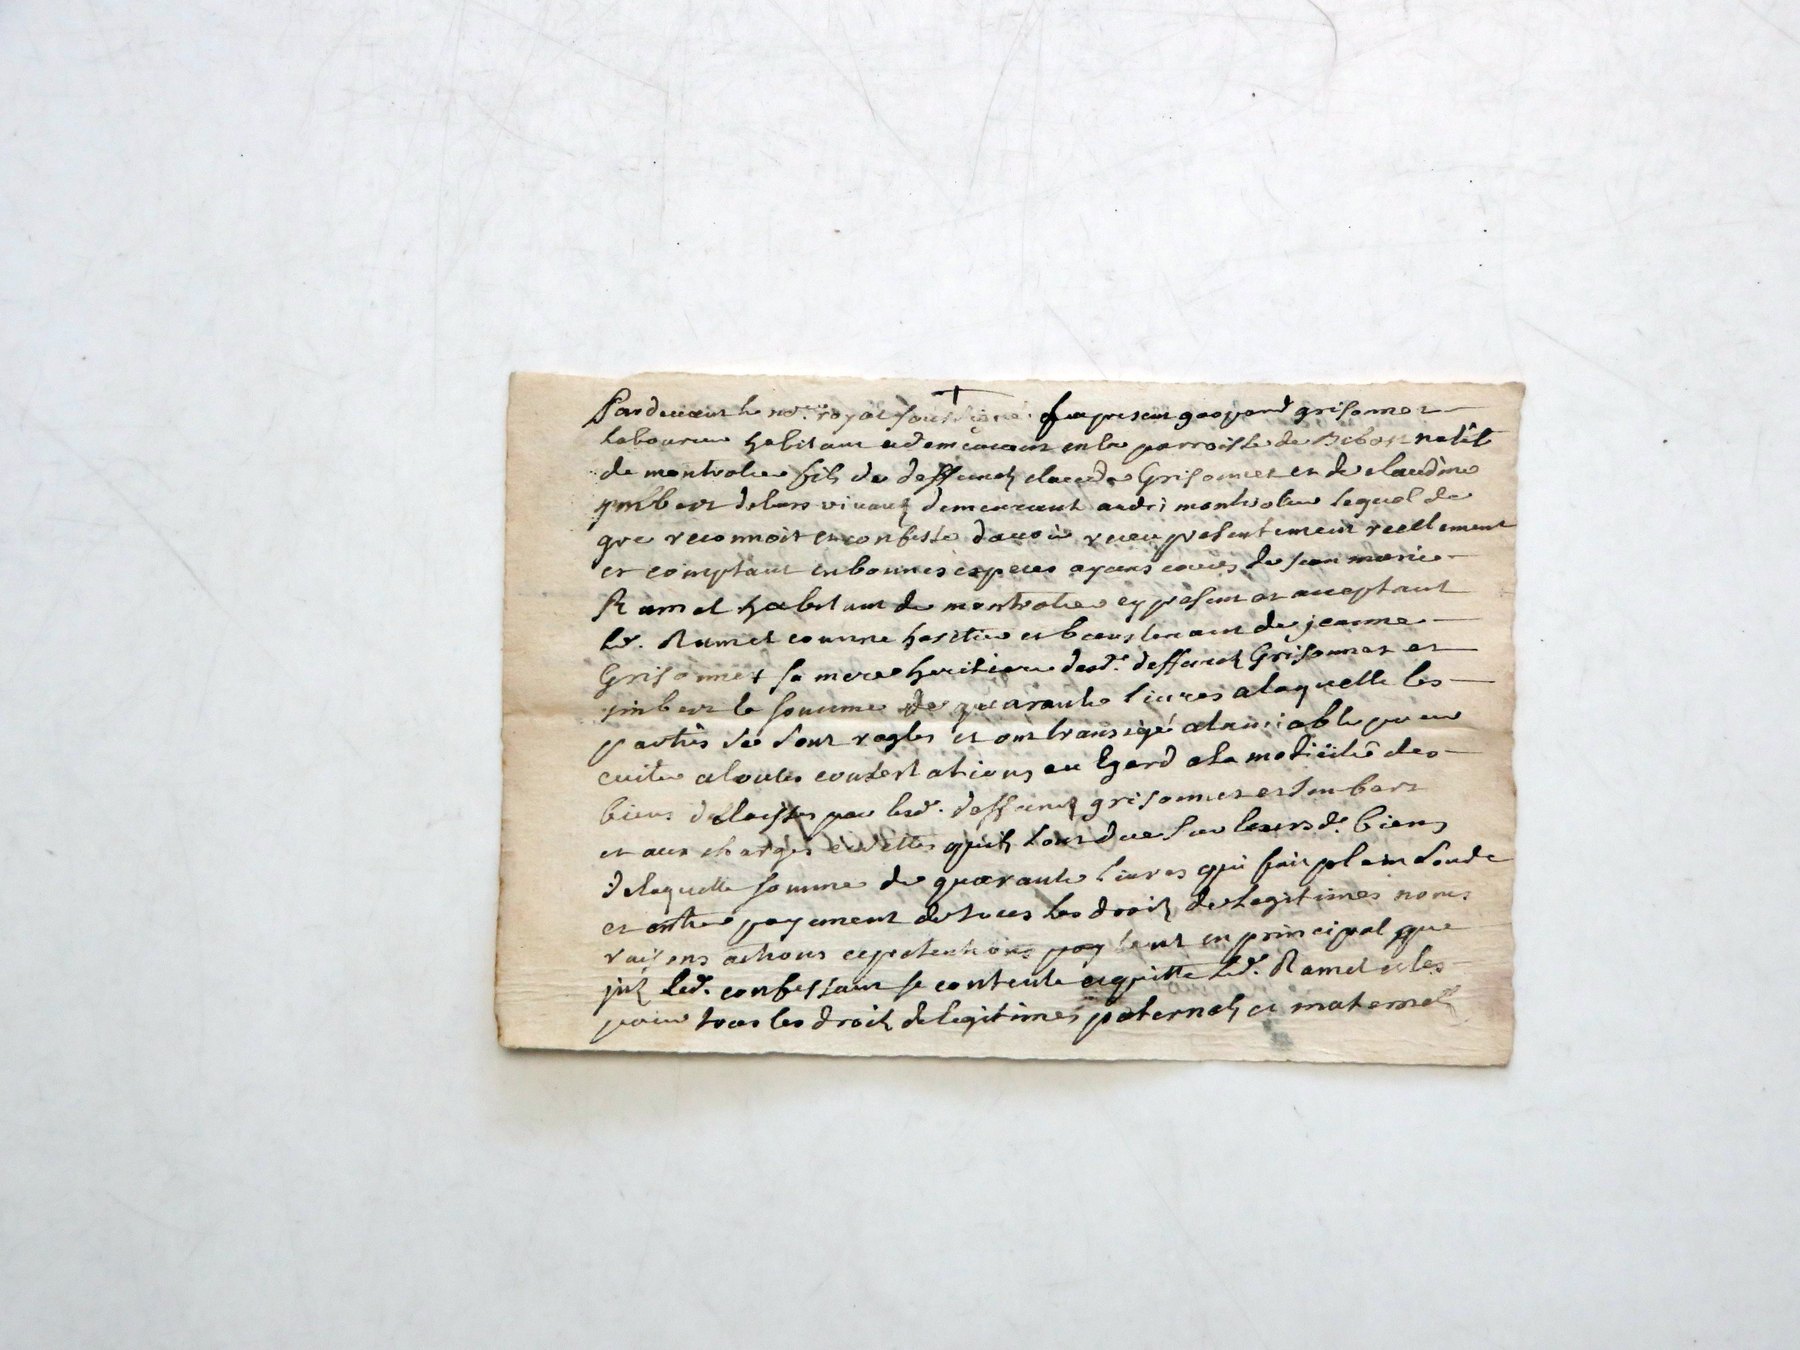 Pardevant le no.re royal soussigné. fut present gaspard grisonnet
laboureur habitant et demeurant en la parroisse de natif
de montrotier fils de deffunctz claude Grisonnet et de claudine
ymbert de leurs vivantz demeurant audi montrotier lequel de
gre reconnoit et confesse d'avoir receu presentement reellement
et comptant en bonnes especes ayant cours de Jean marie
Ramel habitant de montrotier cy present et acceptant
led. Ramel comme heritier et bientenant de jeanne
Grisonnet sa mere heritiere desd. deffunctz Grisonnet et
ymbert la somme de quarante livres a laquelle les
parties se sont regles et ont transigé alamiable pour
eviter a toutes contestations eu Egard ala modicité des
biens delaisses par lesd. deffunctz grisonnet et Imbert
et aux charges et dettes quilz sont due sur leursd. biens
delaquelle somme de quarante livres qui fait plain soude
et entier payement de tous les droitz de legitimes noms
raisons actions et pretentions tant en principal que
jntz led. confessant se contente et quitte led. Ramel et les
pour tous les droitz de legitimes paternelz et maternelz